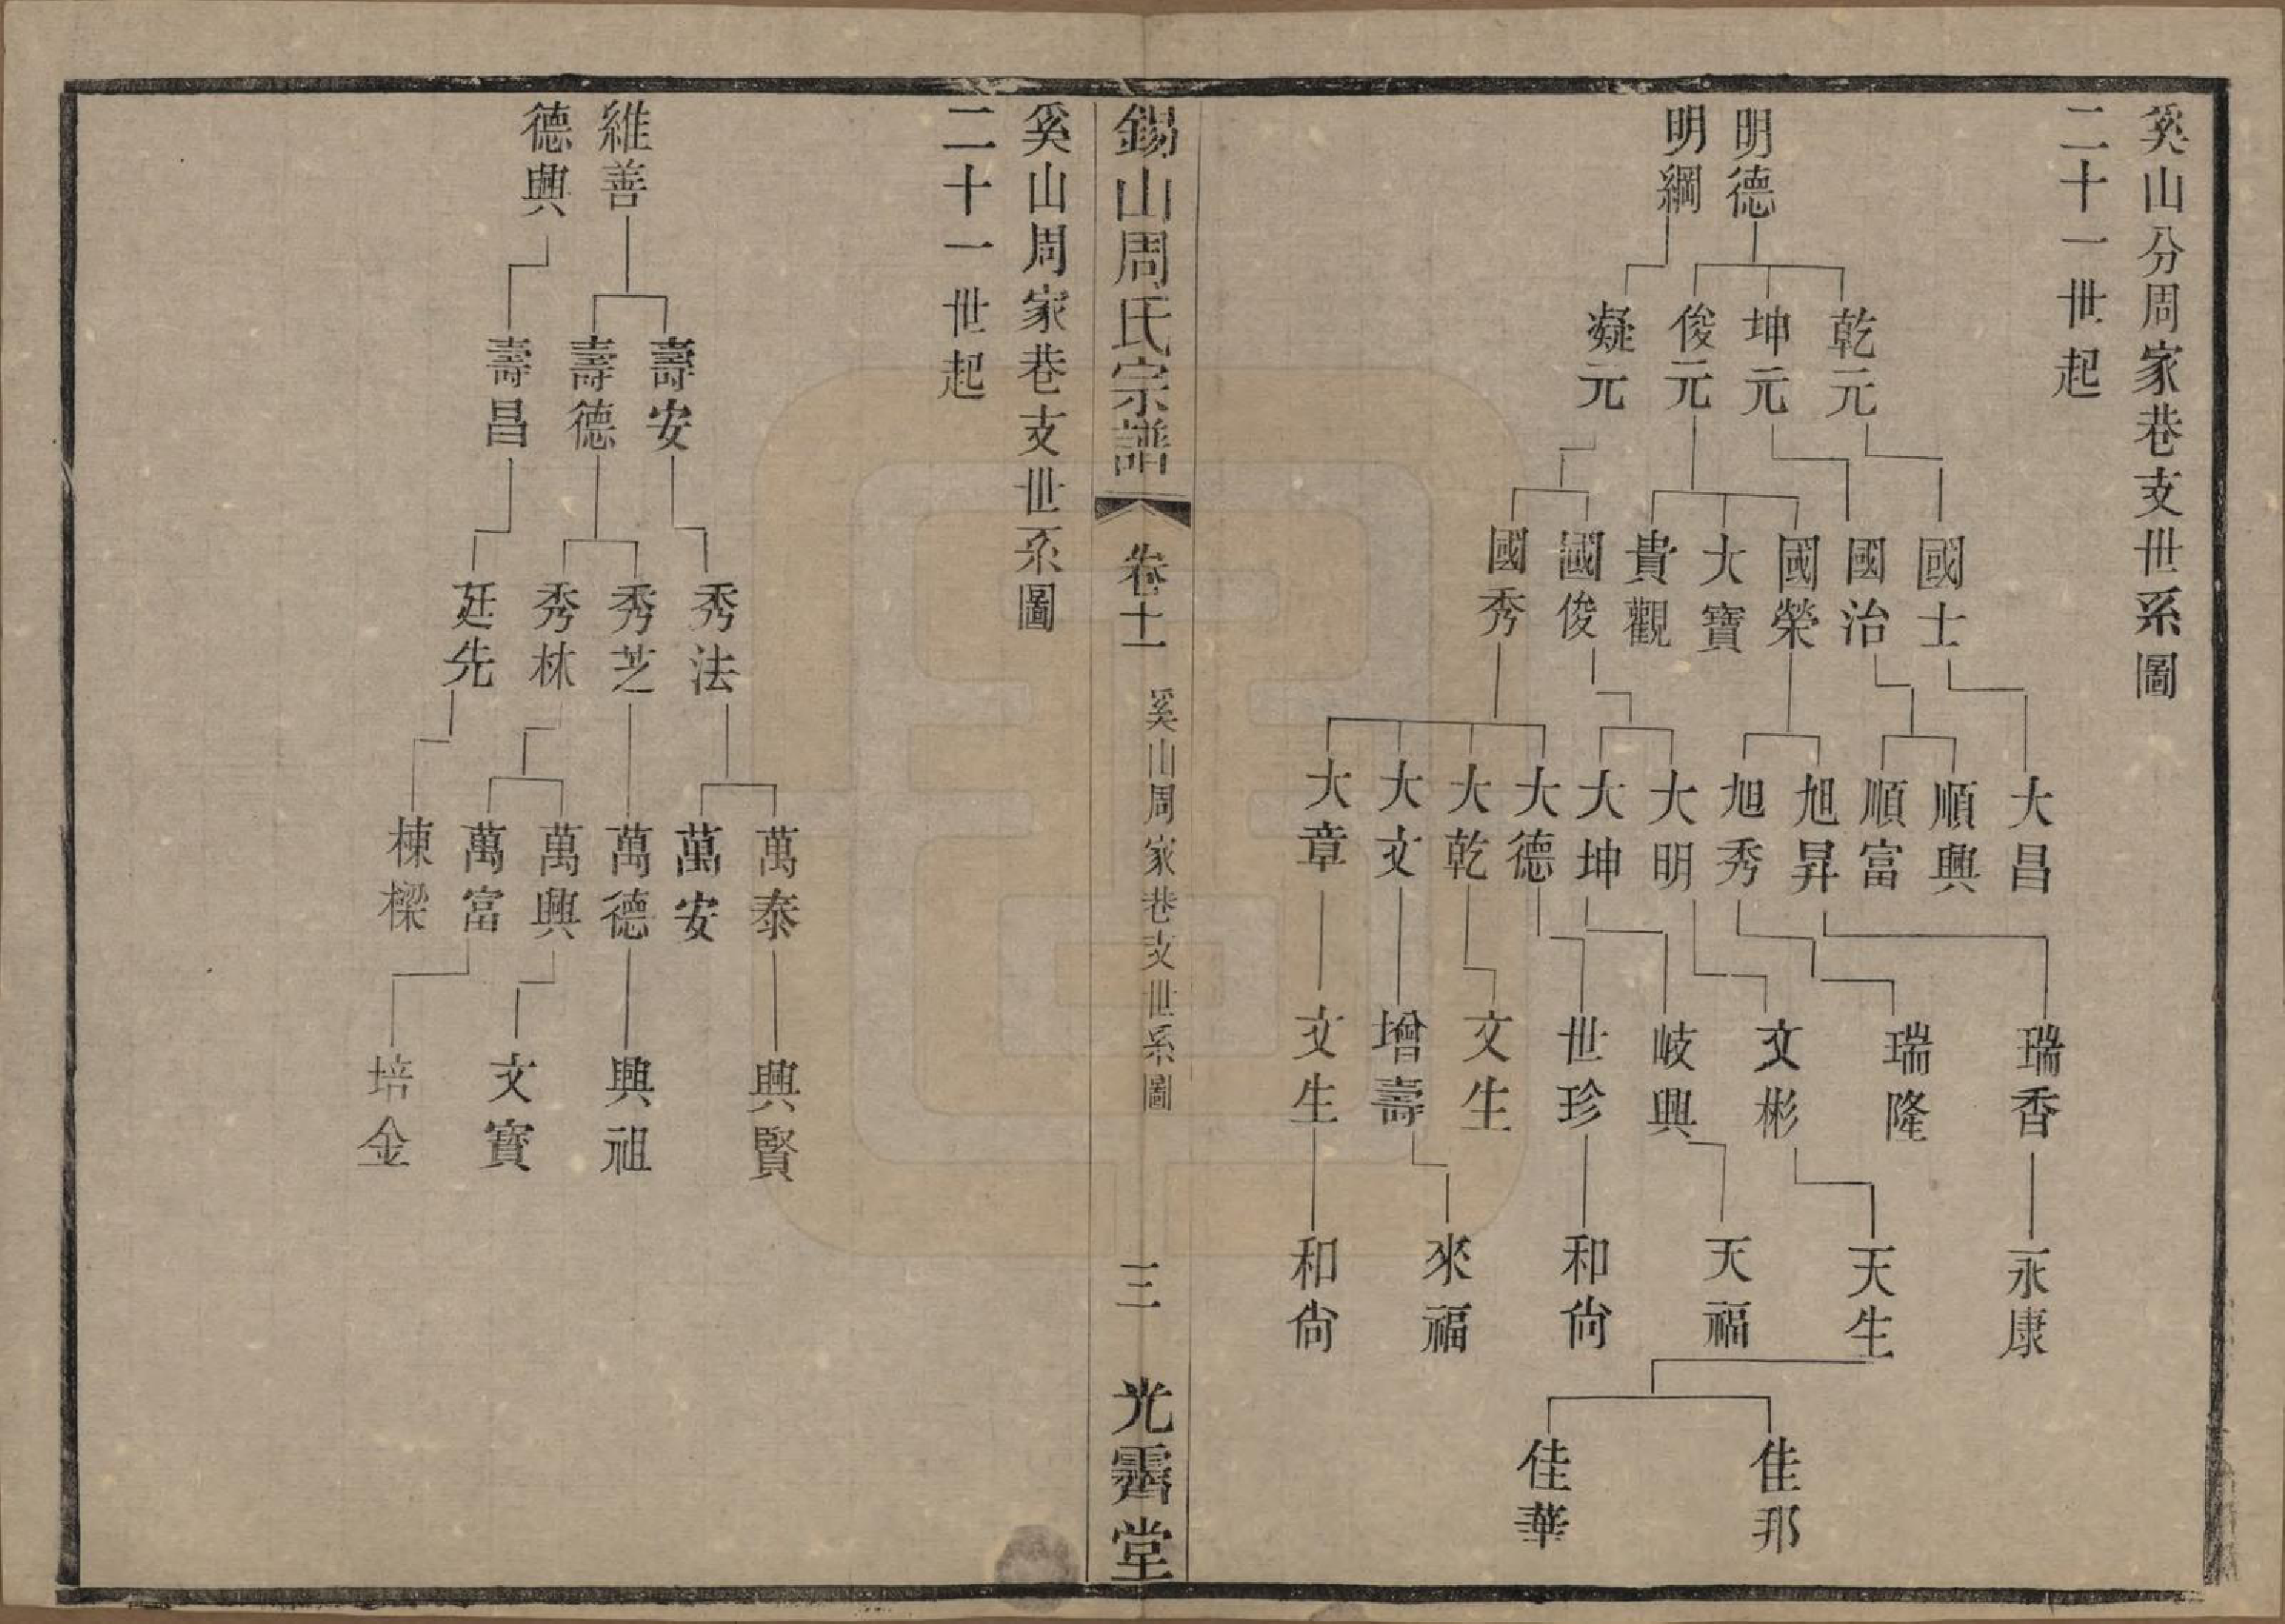 奚山分周家巷支世系圖
二十一世起
明德
明綱
乾元
坤元
俊元
凝元
國士
國治
國榮
大寶
貴觀
國俊
國秀
大昌
順興
順富
旭昇
旭秀
大明
大坤
大德
大乾
大文
大章
瑞香
瑞隆
文彬
岐興
世珍
文生
增壽
文生
永康
天生
天福
和尙
來福
和尙
佳邦
佳華
錫山周氏宗譜
卷十一
奚山周家巷支世系圖
三
光霽堂
奚山周家巷支世系圖
二十一世起
維善
德興
壽安
壽德
壽昌
秀法
秀芝
秀林
廷先
萬泰
萬安
萬德
萬興
萬富
棟樑
興賢
興祖
文寶
培金